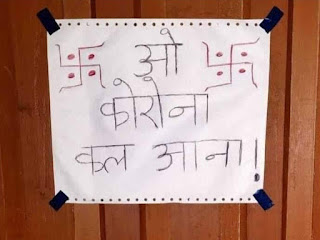 ओ
कोरोना
कल आना।